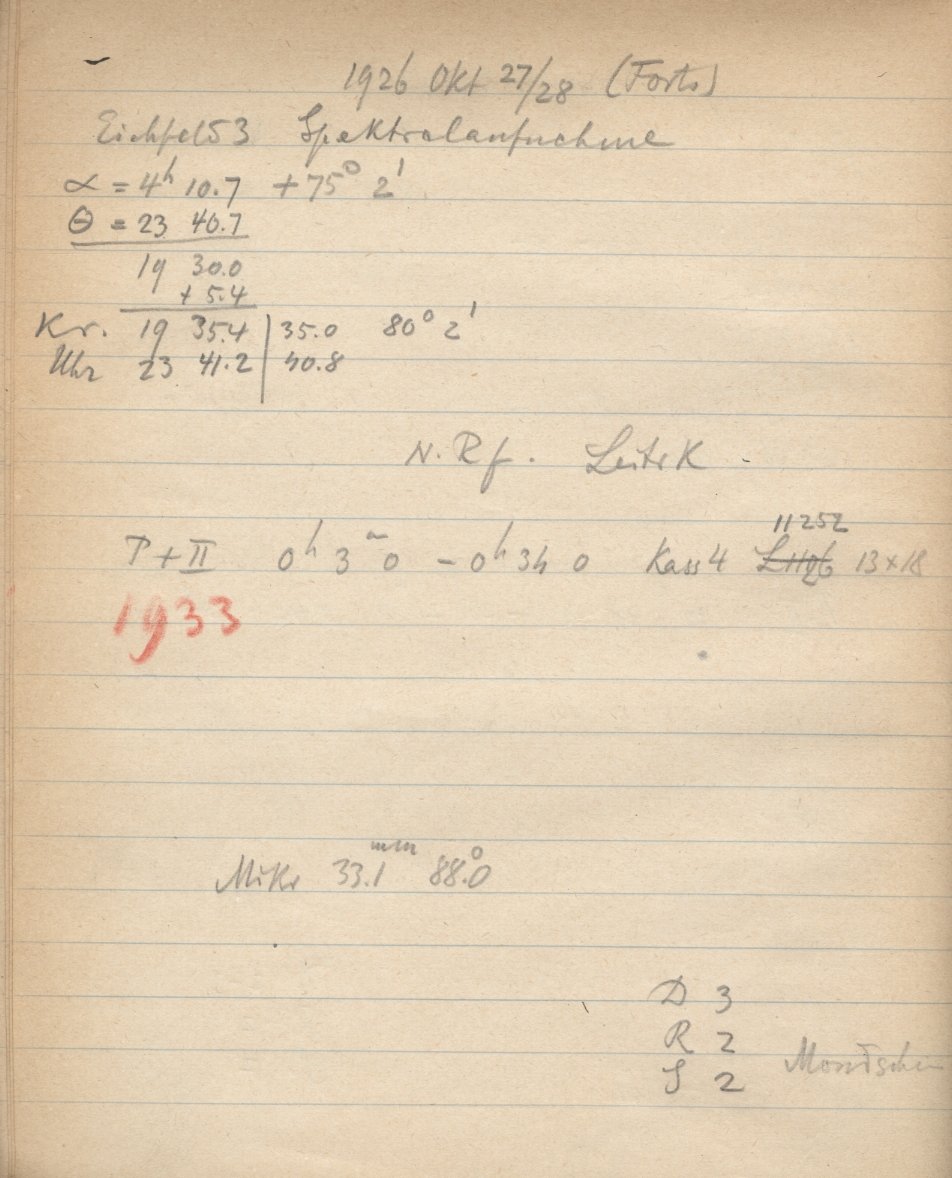 1926 Okt 27/28 (Forts)
Eichfeld 53 Spektralaufnahme
α = 4h 10.7 +75° 2'
Θ = 23 40.7
19 30.0
+ 5.4
Kr. 19 35.4 | 35.0 80° 2'
Uhr 23 41.2 | 40.8
N. Rf. Leitr K
P + II 0h 3m 0 - 0h 34 0 Kass 4 11252 13 × 18
1933
Mikr 33.1mm 88.0°
D 3
R 2
S 2 Mondschein